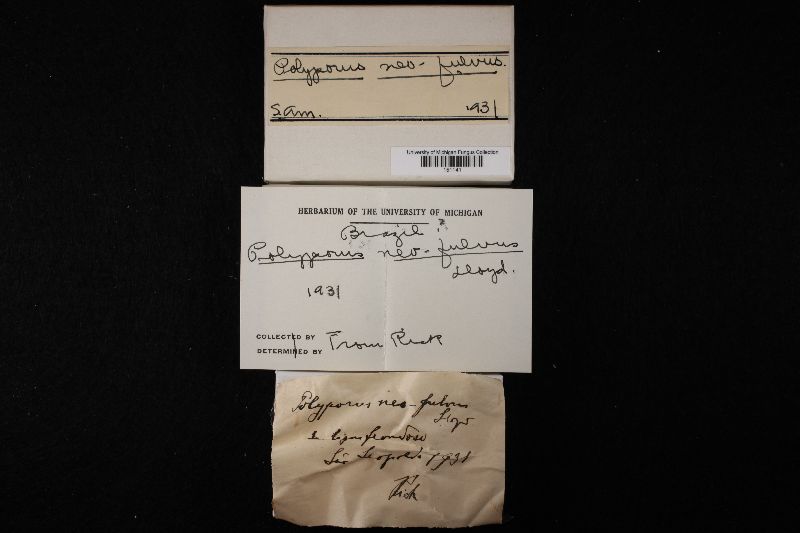 Polyporus neo-fulvus.
S. Am. 1931
University of Michigan Fungus Collection
HERBARIUM OF THE UNIVERSITY OF MICHIGAN
Brazil?
Polyporus neo-fulvus
Lloyd.
1931
COLLECTED BY From Rick
DETERMINED BY
Polyporus neo-fulvus
Lloyd
ligno frondoso
São Leopoldo 1931
Rick